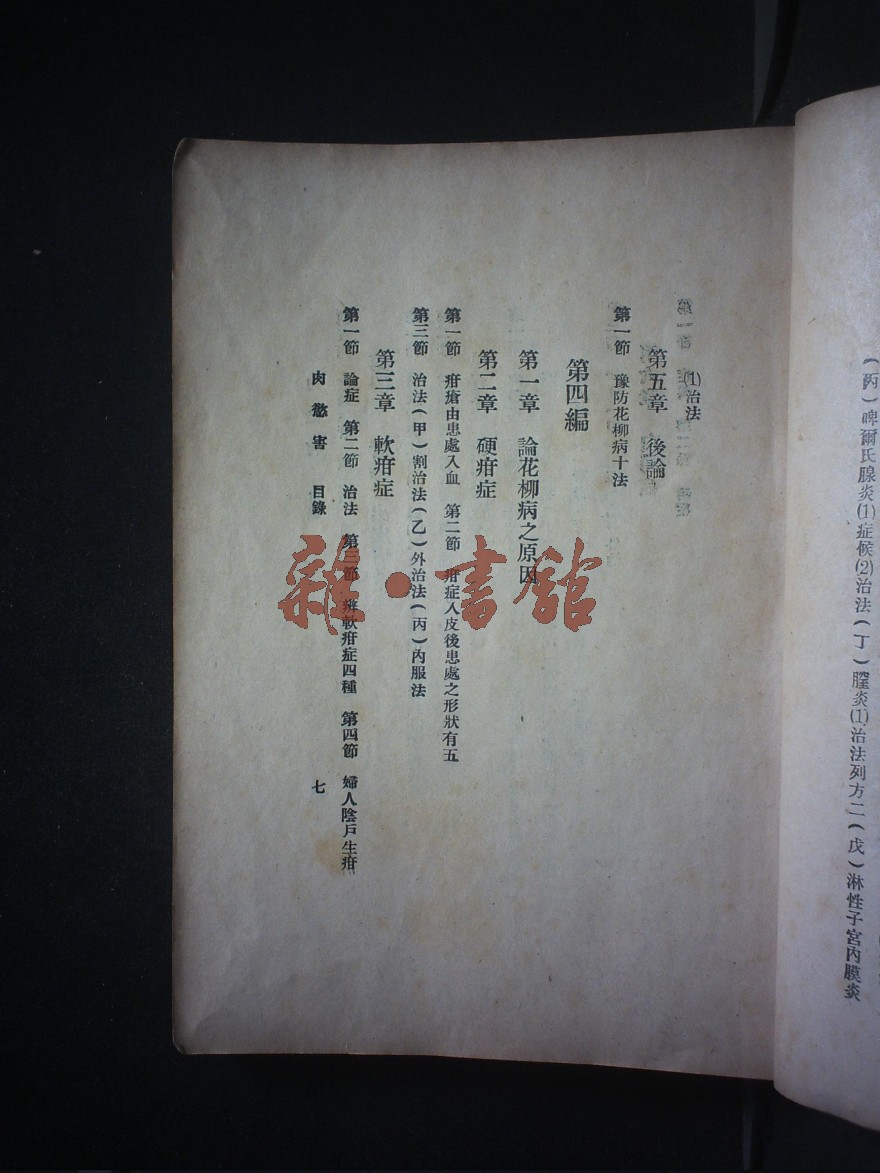 (丙)啤爾氏腺炎(1)症候(2)治法(丁)膣炎(1)治法列方二(戊)淋性子宮內膜炎
(1)治法
第五章 後論
第一節 豫防花柳病十法
第四編
第一章 論花柳病之原因
第二章 硬疳症
第一節 疳瘡由患處入血 第二節 疳症入皮後患處之形狀有五
第三節 治法(甲)割治法(乙)外治法(丙)內服法
第三章 軟疳症
第一節 論症 第二節 治法 第三節 辨軟疳症四種 第四節 婦人陰戶生疳
肉慾害 目錄 七
雜·書館